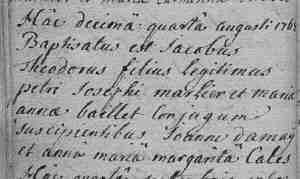 et maria
Hac decimâ quartâ augusti 176
Baptisatus est Jacobus
Theodorus filius legitimus
petri Josephi marleir et mariæ
annæ baillet Conjugum
Suscipientibus Joanne damay
et annâ mariâ margaritâ Cales
Hac quartâ